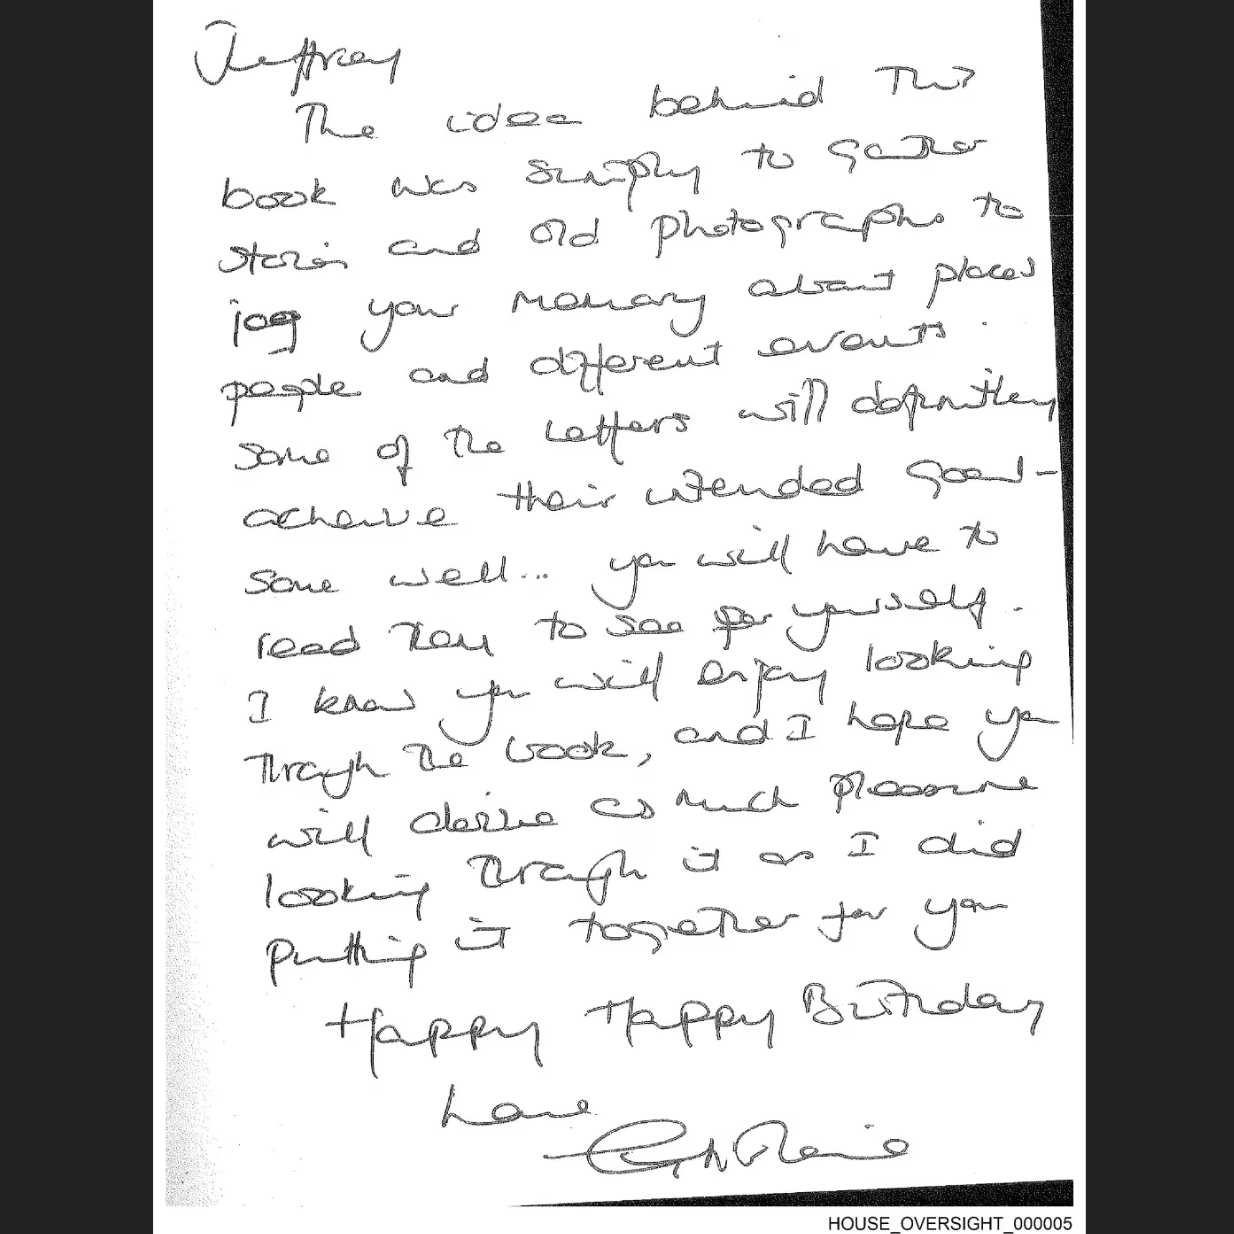 Jeffrey
The idea behind this
book was simply to gather
stories and old photographs to
jog your memory about places
people and different events.
Some of the letters will definitely
acheive their intended goal -
some well... you will have to
read them to see for yourself.
I know you will enjoy looking
through the book, and I hope you
will derive as much pleasure
looking through it as I did
putting it together for you
Happy Happy Birthday
Love
Ghislaine
HOUSE_OVERSIGHT_000005